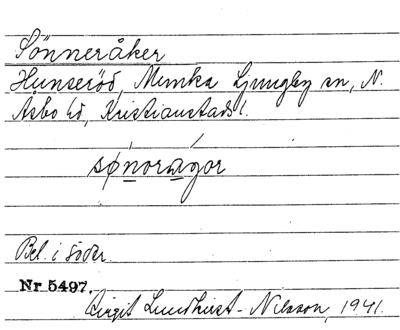 Sönneråker
Hunseröd, Munka Ljungby sn, N.
Åsbo hd, Kristianstads l.
Bel. i söder.
Nr 5497.
Birgit Lundkvist-Nilsson, 1941.